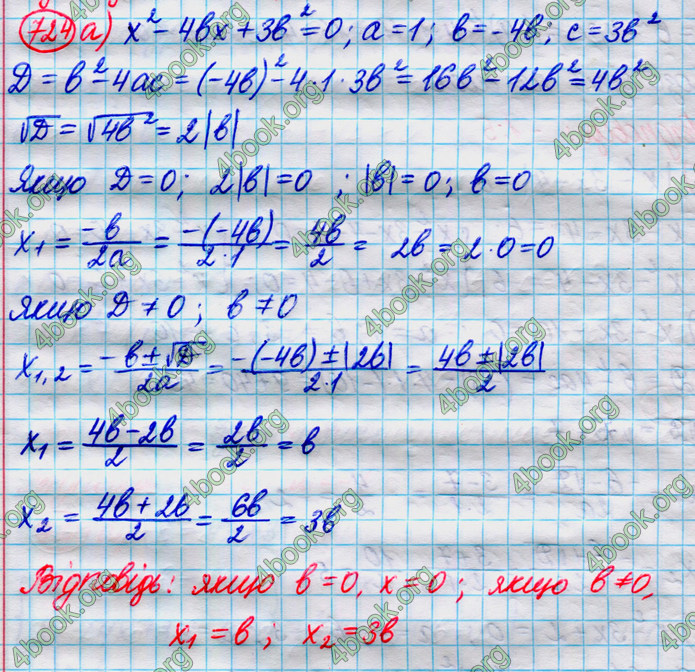 724 а) x² - 4bx + 3b² = 0; a = 1; b = -4b; c = 3b²
D = b² - 4ac = (-4b)² - 4·1·3b² = 16b² - 12b² = 4b²
√D = √4b² = 2|b|
Якщо D = 0; 2|b| = 0; |b| = 0; b = 0
x₁ = -b/2a = -(-4b)/2·1 = 4b/2 = 2b = 2·0 = 0
якщо D ≠ 0; b ≠ 0
x₁,₂ = -b±√D/2a = -(-4b)±|2b|/2·1 = 4b±|2b|/2
x₁ = 4b-2b/2 = 2b/2 = b
x₂ = 4b+2b/2 = 6b/2 = 3b
Відповідь: якщо b = 0, x = 0; якщо b ≠ 0,
x₁ = b; x₂ = 3b
4book.org